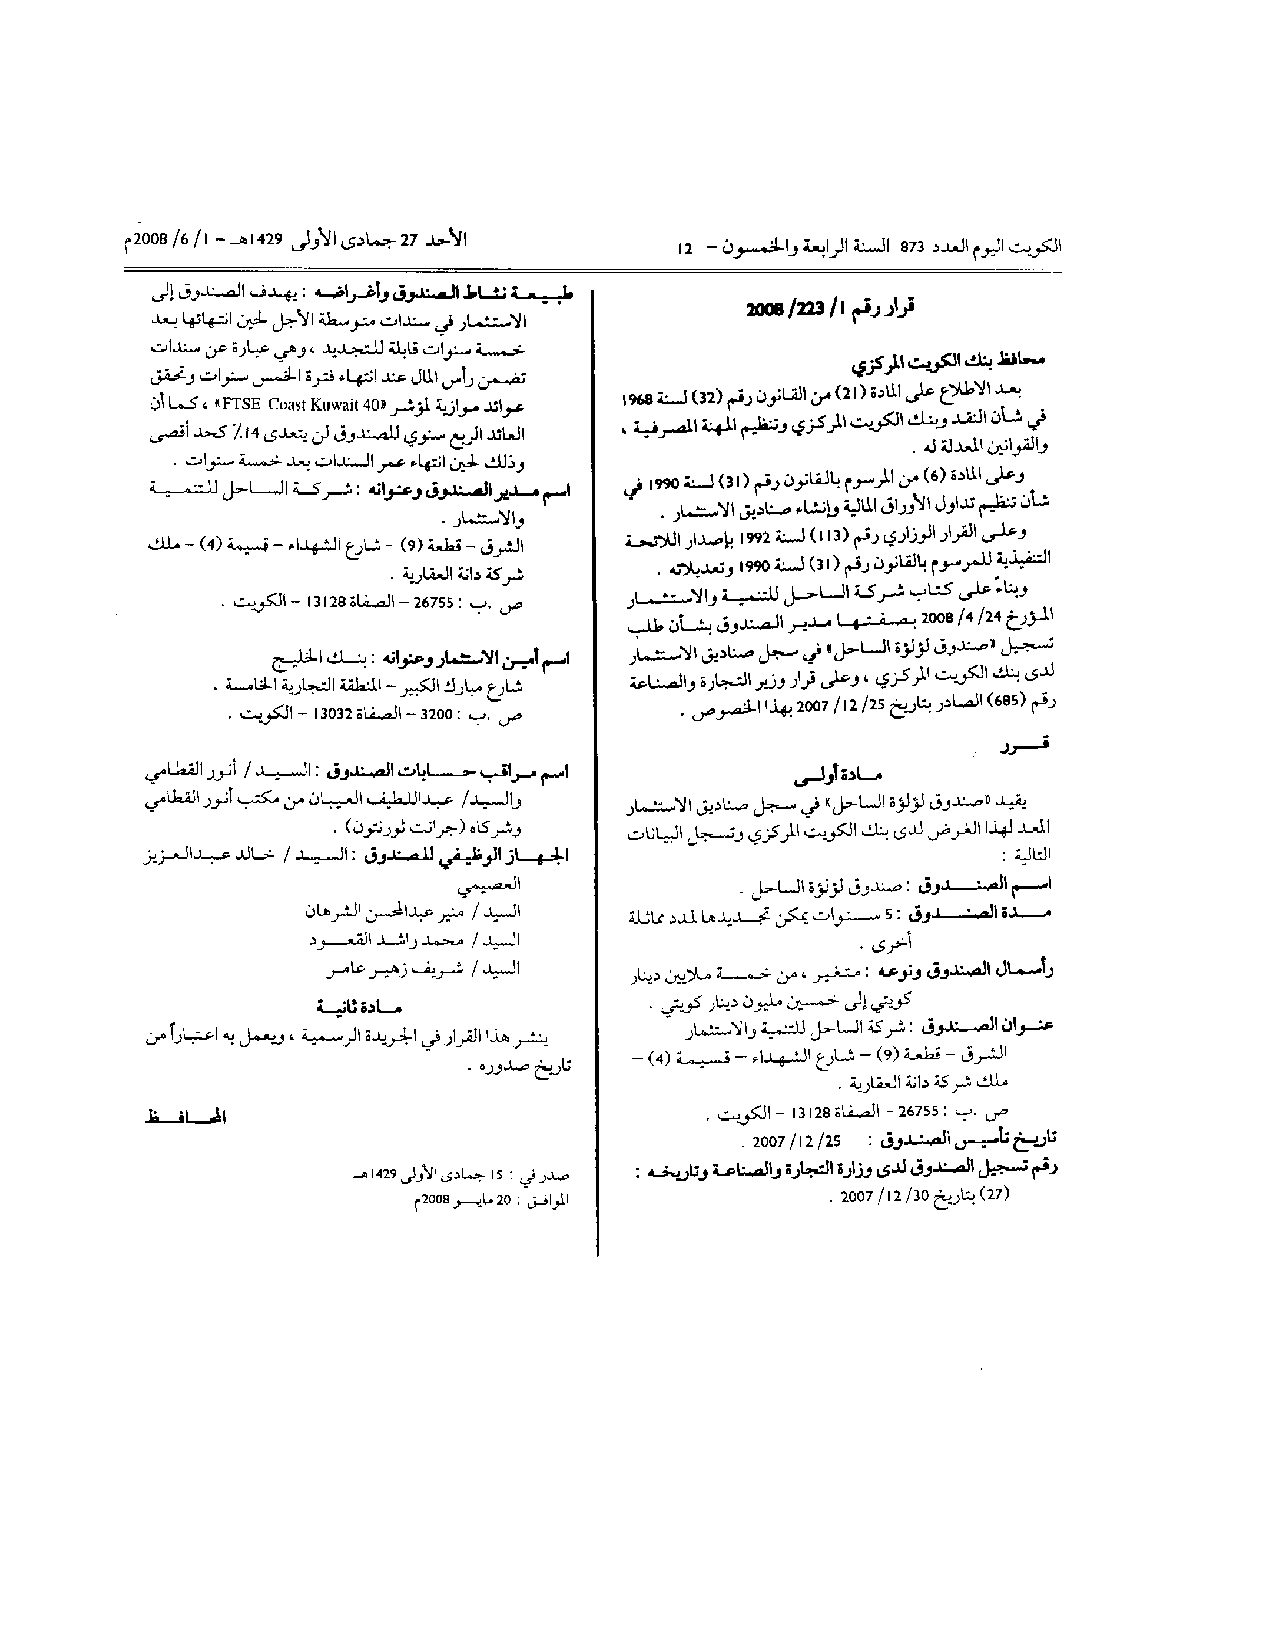 الكويت اليوم العدد 873 السنة الرابعة والخمسون - 12
الأحد 27 جمادى الأولى 1429هـ - 1 /6 /2008م
قرار رقم 1/ 223/ 2008
محافظ بنك الكويت المركزي
بعد الاطلاع على المادة (21) من القانون رقم (32) لسنة 1968
في شأن النقد وبنك الكويت المركزي وتنظيم المهنة المصرفية ،
والقوانين المعدلة له .
وعلى المادة (6) من المرسوم بالقانون رقم (31) لسنة 1990 في
شأن تنظيم تداول الأوراق المالية وإنشاء صناديق الاستثمار .
وعلى القرار الوزاري رقم (113) لسنة 1992 بإصدار اللائحة
التنفيذية للمرسوم بالقانون رقم (31) لسنة 1990 وتعديلاته .
وبناءً على كتاب شركة الساحل للتنمية والاستثمار
المؤرخ 24/ 4/ 2008 بصفتها مدير الصندوق بشأن طلب
تسجيل «صندوق لؤلؤة الساحل» في سجل صناديق الاستثمار
لدى بنك الكويت المركزي ، وعلى قرار وزير التجارة والصناعة
رقم (685) الصادر بتاريخ 25/ 12/ 2007 بهذا الخصوص .
قرر
مادة أولى
يقيد «صندوق لؤلؤة الساحل» في سجل صناديق الاستثمار
المعد لهذا الغرض لدى بنك الكويت المركزي وتسجل البيانات
التالية :
اسم الصندوق : صندوق لؤلؤة الساحل .
مدة الصندوق : 5 سنوات يمكن تجديدها لمدد مماثلة
أخرى .
رأسمال الصندوق ونوعه : متغير ، من خمسة ملايين دينار
كويتي إلى خمسين مليون دينار كويتي .
عنوان الصندوق : شركة الساحل للتنمية والاستثمار
الشرق - قطعة (9) - شارع الشهداء - قسيمة (4) -
ملك شركة دانة العقارية .
ص .ب : 26755 - الصفاة 13128 - الكويت .
تاريخ تأسيس الصندوق : 25/ 12/ 2007 .
رقم تسجيل الصندوق لدى وزارة التجارة والصناعة وتاريخه :
(27) بتاريخ 30/ 12/ 2007 .
طبيعة نشاط الصندوق وأغراضه : يهدف الصندوق إلى
الاستثمار في سندات متوسطة الأجل لحين انتهائها بعد
خمسة سنوات قابلة للتجديد ، وهي عبارة عن سندات
تضمن رأس المال عند انتهاء فترة الخمس سنوات وتحقق
عوائد موازية لمؤشر «FTSE Coast Kuwait 40» ، كما أن
العائد الربع سنوي للصندوق لن يتعدى 14٪ كحد أقصى
وذلك لحين انتهاء عمر السندات بعد خمسة سنوات .
اسم مدير الصندوق وعنوانه : شركة الساحل للتنمية
والاستثمار .
الشرق - قطعة (9) - شارع الشهداء - قسيمة (4) - ملك
شركة دانة العقارية .
ص .ب : 26755 - الصفاة 13128 - الكويت .
اسم أمين الاستثمار وعنوانه : بنك الخليج
شارع مبارك الكبير - المنطقة التجارية الخامسة .
ص .ب : 3200 - الصفاة 13032 - الكويت .
اسم مراقب حسابات الصندوق : السيد / أنور القطامي
والسيد/ عبداللطيف العيبان من مكتب أنور القطامي
وشركاه (جرانت ثورنتون) .
الجهاز الوظيفي للصندوق : السيد / خالد عبدالعزيز
العصيمي
السيد / منير عبدالمحسن الشرهان
السيد / محمد راشد القعود
السيد / شريف زهير عامر
مادة ثانية
ينشر هذا القرار في الجريدة الرسمية ، ويعمل به اعتباراً من
تاريخ صدوره .
المحافظ
صدر في : 15 جمادى الأولى 1429هـ
الموافق : 20 مايو 2008م